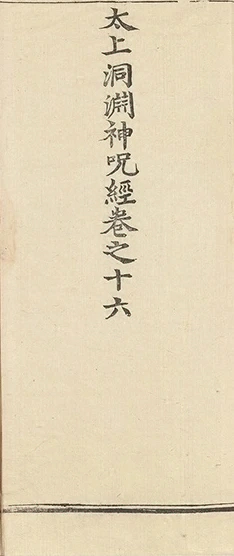 太上洞淵神呪經卷之十六